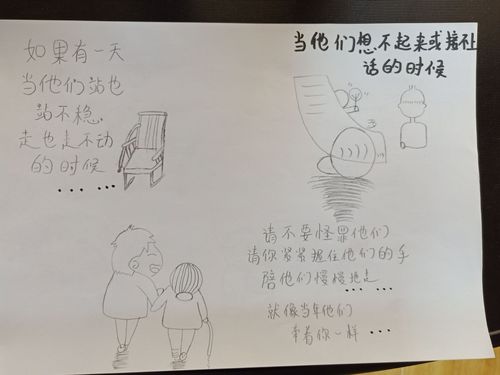 如果有一天
当他们站也
站不稳,
走也走不动
的时候
••••••
当他们想不起来或接不上
话的时候
请不要怪罪他们
请你紧紧握住他们的手
陪他们慢慢地走
••••••
就像当年他们
牵着你一样•••